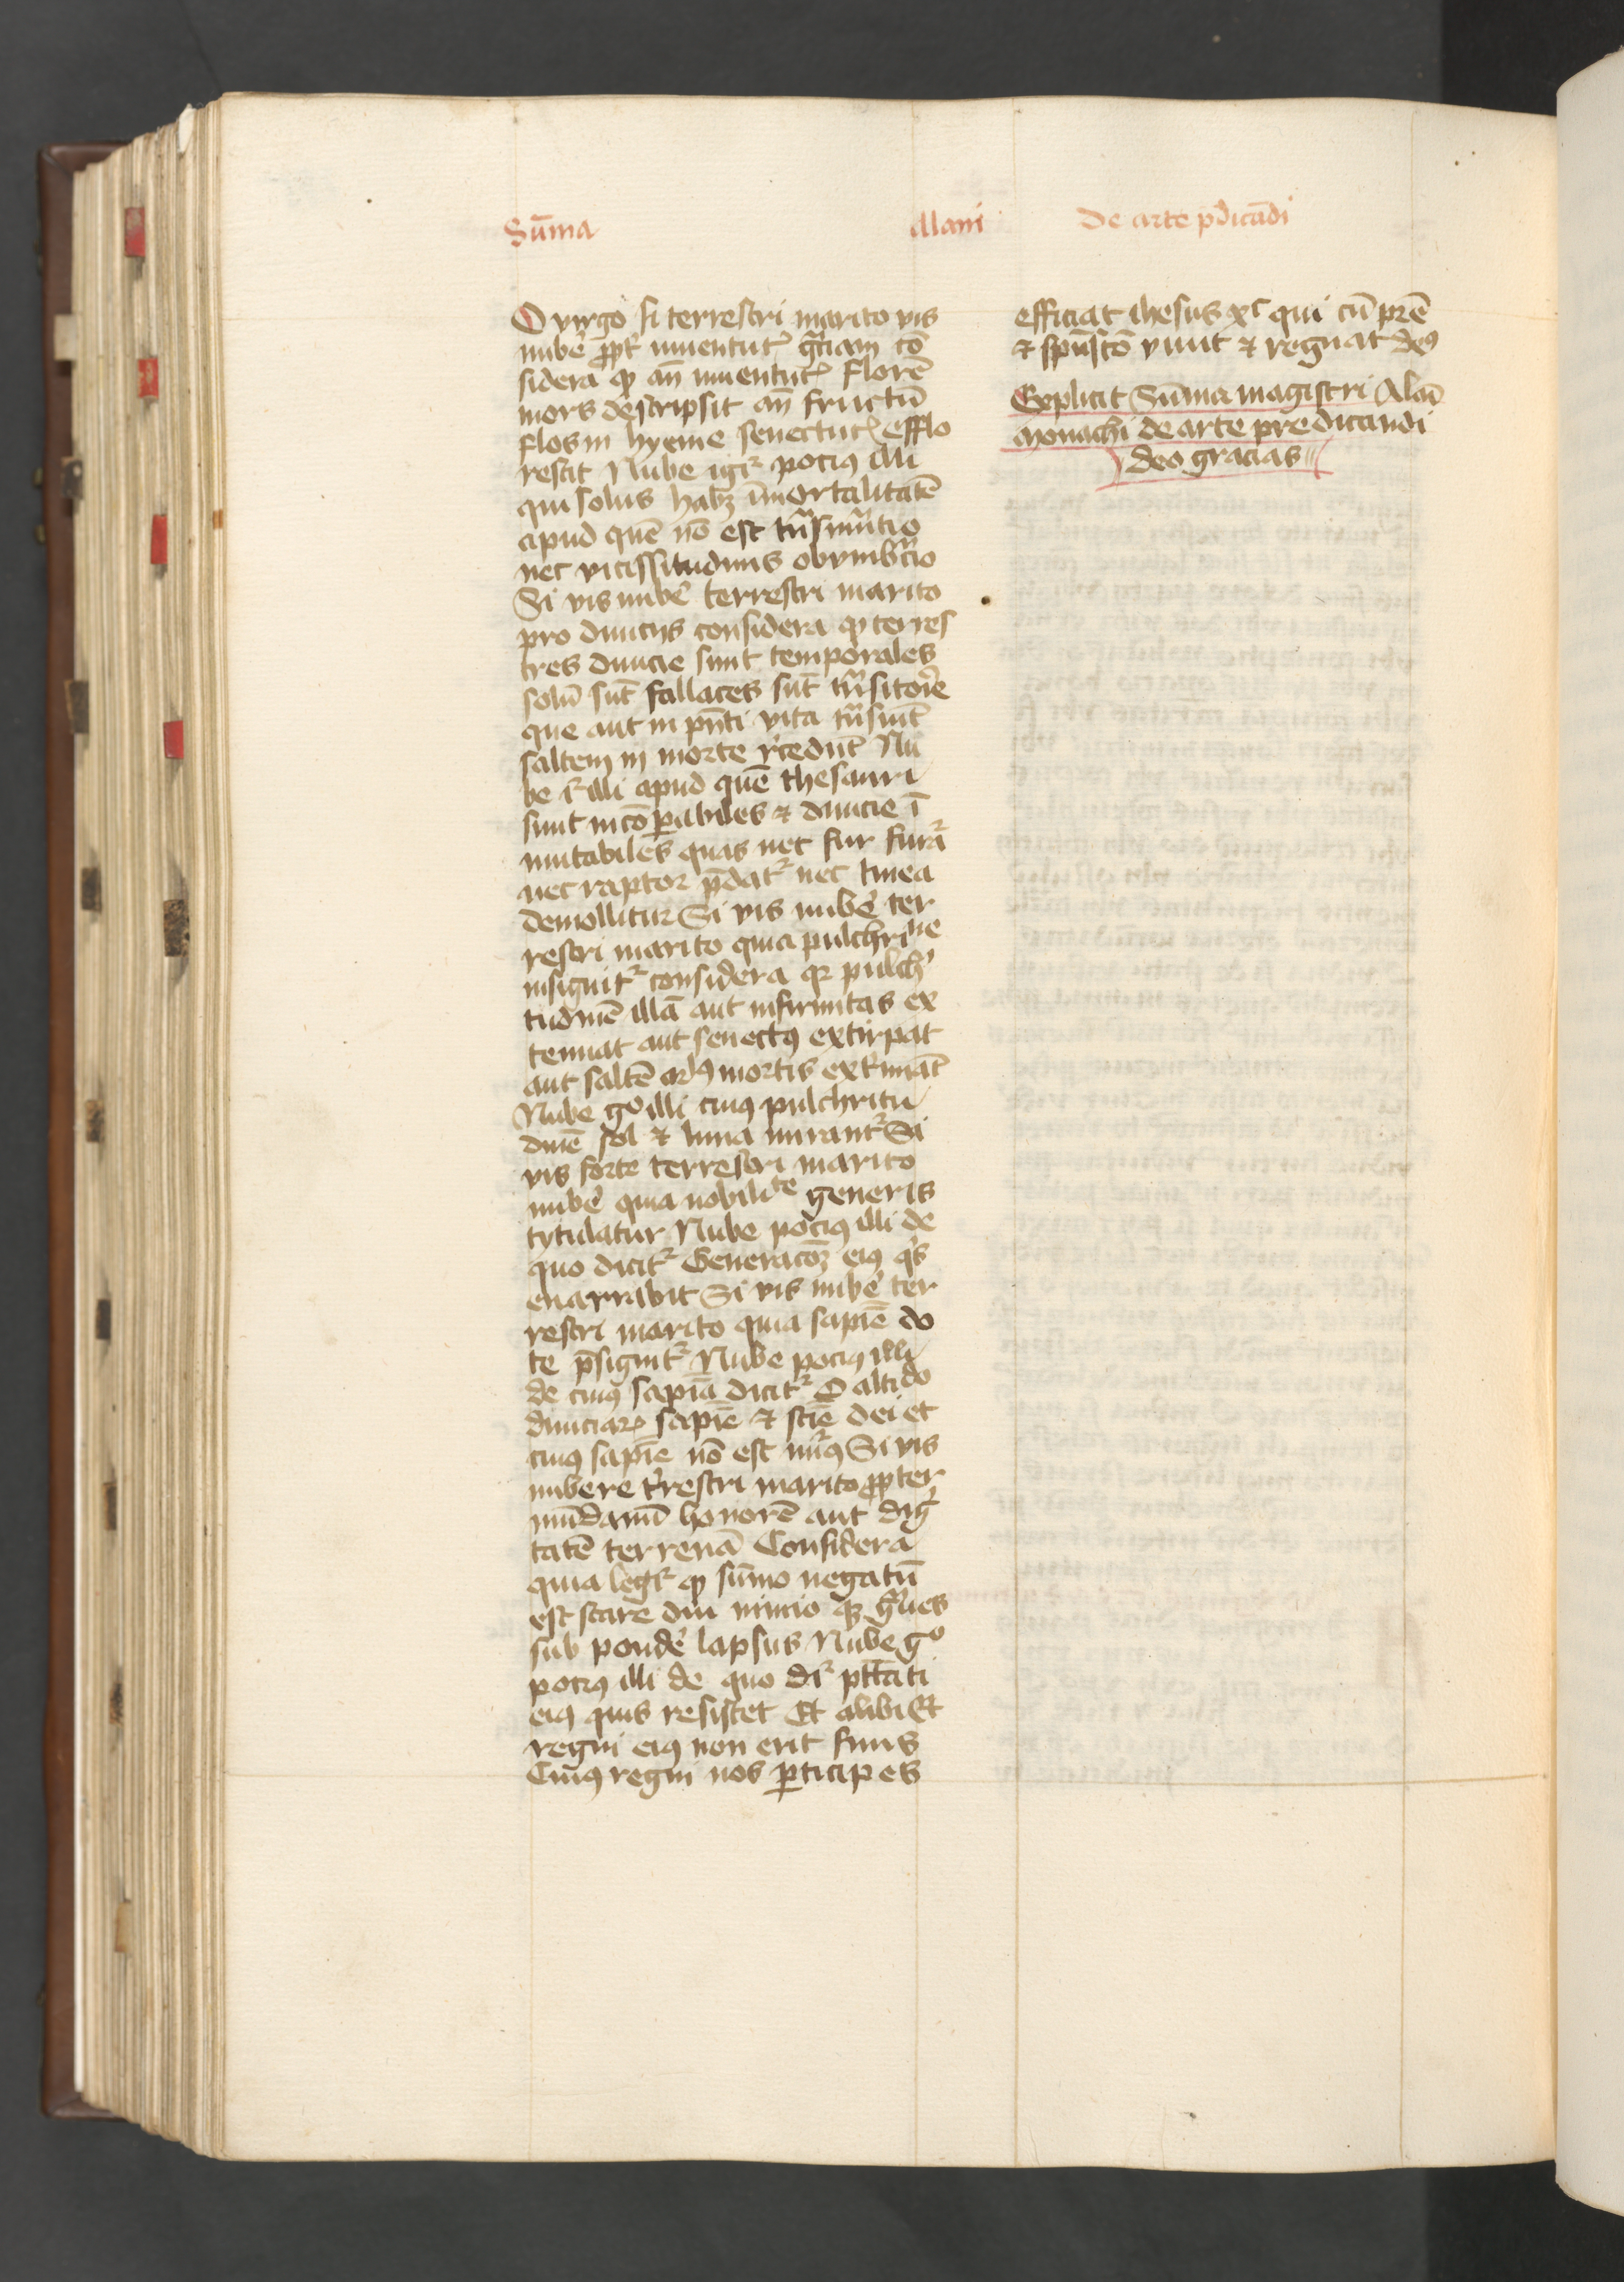 Sūma Alani De arte p̄dicādi
O virgo si terrestri marito vis
nubē ꝓpt̉ iuuentutꝭ gr̄am cō
sidera ꝙ an̄ iuuentutꝭ florē
mors descripsit an̄ fructū
flos in hyeme senectutꝭ efflo
rescit Nube igr̉ pociꝰ illi
qui solus habꝫ īmortalitatē
apud quē nō est tn̄smutio
nec vicissitudinis obvmbr̄cio
Si vis nubē terrestri marito
pro diuicijs considera ꝙ terres
tres diuicie sunt temporales
solū sūt fallaces sūt tn̄sitorie
que aut in pn̄ti vita tn̄siūt
saltem in morte r̉cedūt Nu
be ḡ illi apud quē thesauri
sunt incōꝑabiles ⁊ diuicie ī
mutabiles quas nec fur furat̉
nec raptor p̄dat̉ nec tinea
demollitur Si vis nubē ter
restri marito quia pulchrine
insignit̉ considera ꝙ pulch̉
tudinē illā aut infirmitas ex
tenuat aut senectꝰ extirpat
aut saltē arꝰ mortis ext̉mīat
Nube gͦ illi cuiꝰ pulchritu
dinē sol ⁊ luna mirant̉ Si
vis forte terrestri marito
nubē quia nobilite generis
tytulatur Nube pociꝰ illi de
quo dicit̉ Generacōꝫ eiꝰ qͥs
enarrabit Si vis nubē ter
restri marito quia sapiē do
te p̄signit̉ Nube pociꝰ illi
de cuiꝰ sapiā dicit̉ O altido
diuiciaꝝ sapiē ⁊ sciē dei et
cuiꝰ sapiē nō est nūꝰ Si vis
nubere t̉restri marito ꝓpter
mūdanū honorē aut dig
tatē terrenā Considera
quia legit̉ ꝙ sūmo negatū
est stare diu nimio qꝫ gͣues
sub pondē lapsus Nube gͦ
pociꝰ illi de quo dr̉ ptt̄ati
eiꝰ quis resistet Et alibi Et
regni eiꝰ non erit finis
Cuiꝰ regni nos ꝑticipes
efficiat ihesus xͨ qui cū pr̄e
⁊ spūscō viuit ⁊ regnat deꝰ
Explicit Sūma magistri Alaī
monachi de arte predicandi
deo gracias